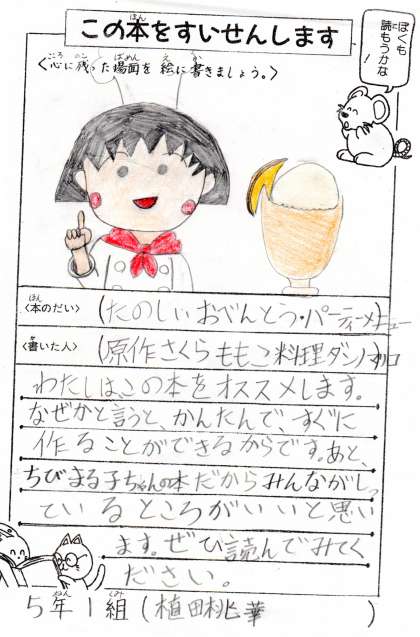 この本をすいせんします
ぼくも
読もうかな
!
〈心に残った場面を絵に書きましょう。〉
〈本のだい〉(たのしいおべんとう・パーティーメニュー
〈書いた人〉(原作さくらももこ料理ダンノマリコ
わたしは、この本をオススメします。
なぜかと言うと、かんたんで、すぐに
作ることができるからです。あと、
ちびまる子ちゃんの本だからみんながしっ
ているところがいいと思い
ます。ぜひ読んでみてく
ださい。
5年1組(植田桃華)